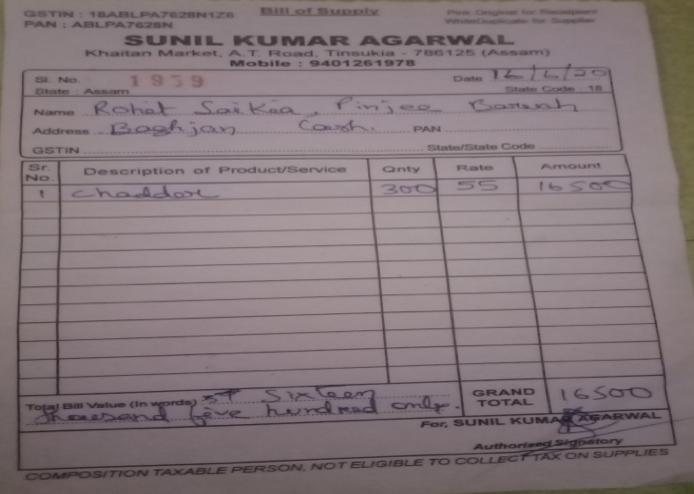 GSTIN : 18ABLPA7628N1Z6 Bill of Supply Pink Original for Receipient
PAN : ABLPA7628N White/Duplicate for Supplier
SUNIL KUMAR AGARWAL
Khaitan Market, A.T. Road, Tinsukia - 786125 (Assam)
Mobile : 9401261978
Sl. No. 1959 Date 16/6/20
State : Assam State Code : 18
Name Rohit Saikia, Pinjee Baruah
Address Baghjan Cash. PAN
GSTIN State/State Code
Sr. No. Description of Product/Service Qnty Rate Amount
1 Chaddor 300 55 16500
Total Bill Value (In words) Sixteen GRAND TOTAL 16500
thousand five hundred only.
For, SUNIL KUMAR AGARWAL
Authorised Signatory
COMPOSITION TAXABLE PERSON, NOT ELIGIBLE TO COLLECT TAX ON SUPPLIES